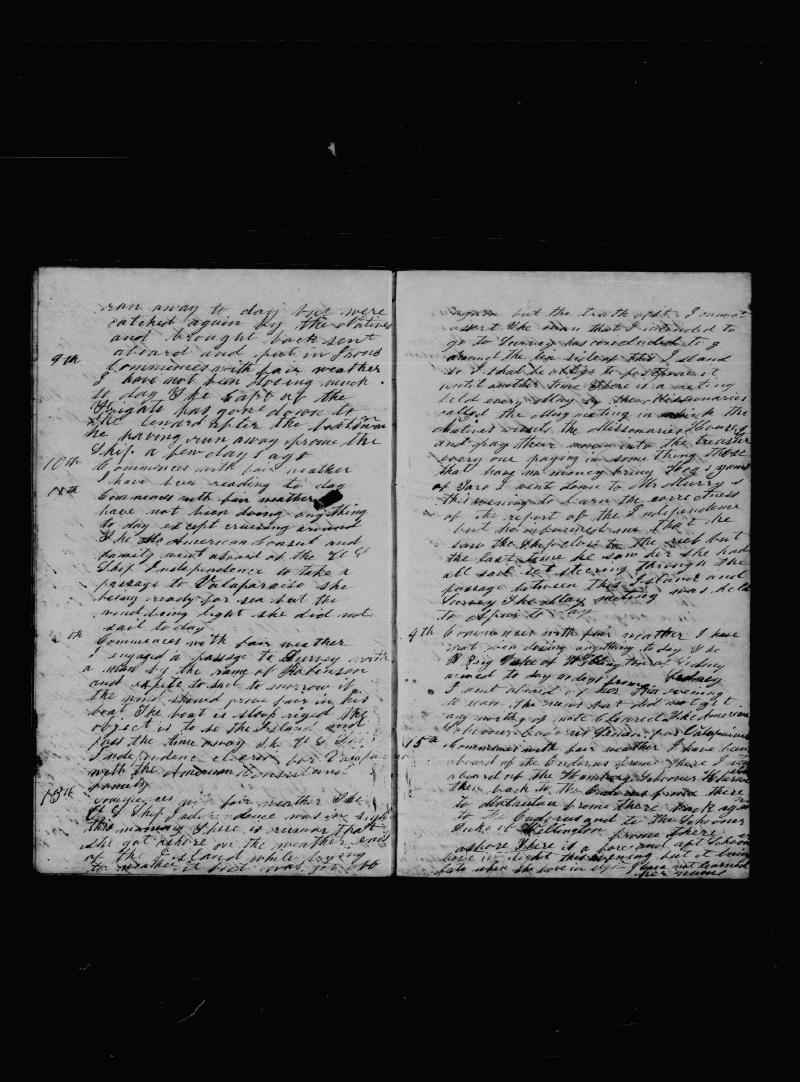 ran away to day but were
catched again by the Natives
and brought back sent
aboard and put in Irons
9th Commences with fair weather
I have not been doing much
to day The Capt of the
Frigate has gone down to
the leward after the
he having run away frome the
Ship a few days ago
10th Commences with fair weather
I have been reading to day
11th Commences with fair weather
have not been doing anything
to day except cruising around
The American Consul and
family went aboard of the
Ship Independence to take a
passage to Valaparaiso she
being ready for sea but the
wind being light she did not
sail to day
2th Commences with fair weather
I engaged a passage to Survey with
a man by the name of Robenson
and expite to sail to morrow if
the wind should prove fair in his
boat The boat is sloop riged the
object is to se the Island and
pass the time away The
Independence cleared for Valaparaiso
with the American Consul and
family
13th Commences with fair weather The
Ship Independence was in sight
this morning There is rumor that
she got ashore on the weather end
of the Island while trying
to weather it but was got off
again but the truth of it I cannot
assert The man that I intended to
go to Survey has concluded to go
around the lea side of this Island
so I shal be oblige to postpone it
until another time There is a meting
held every May by the Missionaries
called the May meting in which the
natives visits the Missionaries Houses
and pay their money into the treasure
every one paying in some thing those
that have no money bring Hogs yams
of Taro I went down to Mr Murry s
this evening to learn the correctness
of the report of the Independence
but he informed me that he
saw the Ship close to the reef but
the last time he saw her she had
all sail set steering through the
passage between this Island and
Survey The May meting was held
to
4th Commences with fair weather I have
not been doing anything to day The
Brig Duke of Wellington of Sydney
arived to day days frome Sedney
I went aboard of her this evening
to learn the news but did not get
any worthy of note Cleared The American
Schooner for Valaparaiso
15th Commences with fair weather I have been
aboard of the Endorus frome there I was
aboard of the Hamburg Schooner
then back to the Endorus frome there
to frome there back again
to the Endorus and to the Schooner
Duke of Wellington frome there
ashore There is a fore and aft Schooner
hove in sight this evening but it being
late when she hove in sight I have not learned
her name